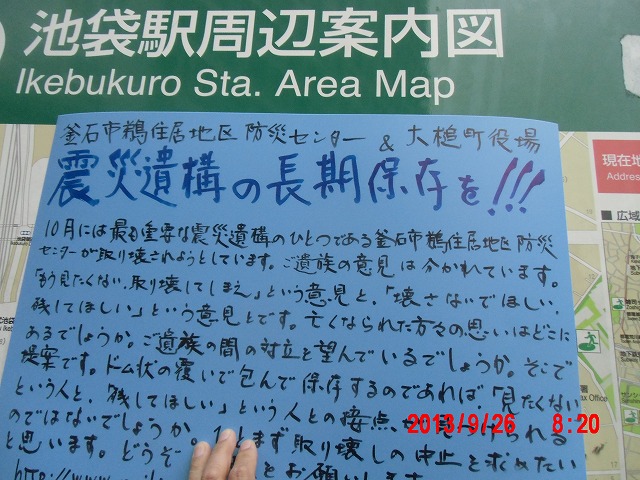 池袋駅周辺案内図
Ikebukuro Sta. Area Map
釜石市鵜住居地区防災センター & 大槌町役場
震災遺構の長期保存を!!!
現在地
Address
広域
10月には最も重要な震災遺構のひとつである釜石市鵜住居地区防災
センターが取り壊されようとしています。ご遺族の意見は分かれています。
「もう見たくない、取り壊してしまえ」という意見と、「壊さないでほしい、
残してほしい」という意見とです。亡くなられた方々の思いはどこに
あるでしょうか。ご遺族の間の対立を望んでいるでしょうか。そこで
提案です。ドーム状の覆いで包んで保存するのであれば「見たくない」
という人と、残してほしい」という人との接点が見つけられる
のではないでしょうか。ひとまず取り壊しの中止を求めたい
と思います。どうぞ
をお願いします
http://www.
2013/9/26 8:20